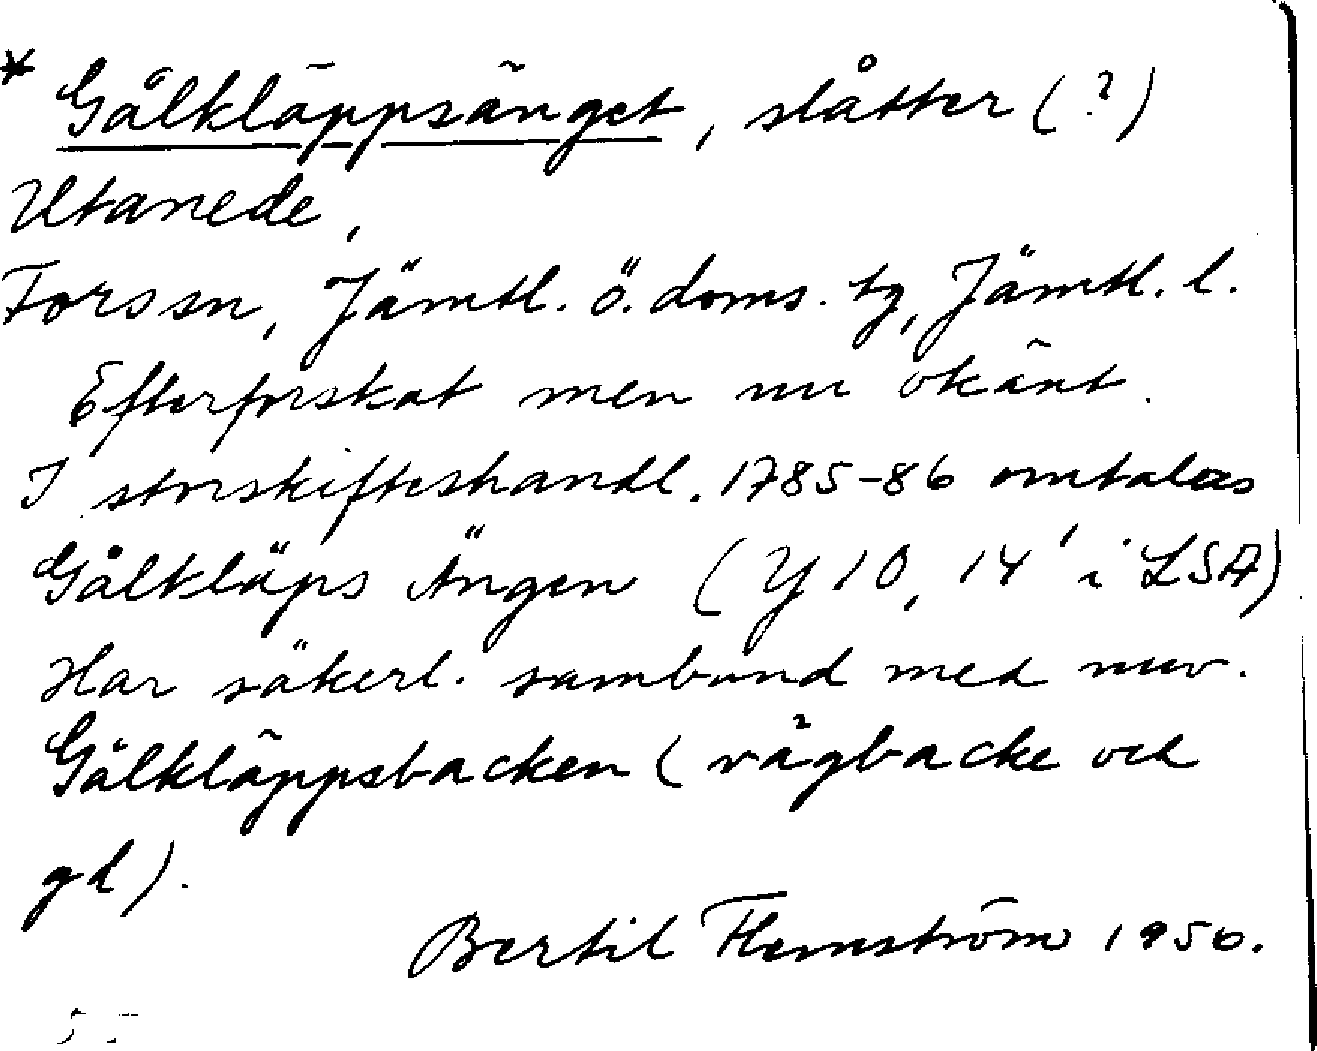 * Gålkläppsänget, slåtter (?)
Utanede,
Fors sn, Jämtl. ö. doms. tg, Jämtl. l.
Efterforskat men nu okänt.
I storskifteshandl. 1785-86 omtalas
Gålkläps Ängen (Y 10, 14' i LSA)
Har säkerl. samband med nuv.
Gålkläppsbacken (vägbacke och
gd).
Bertil Flemström 1950.